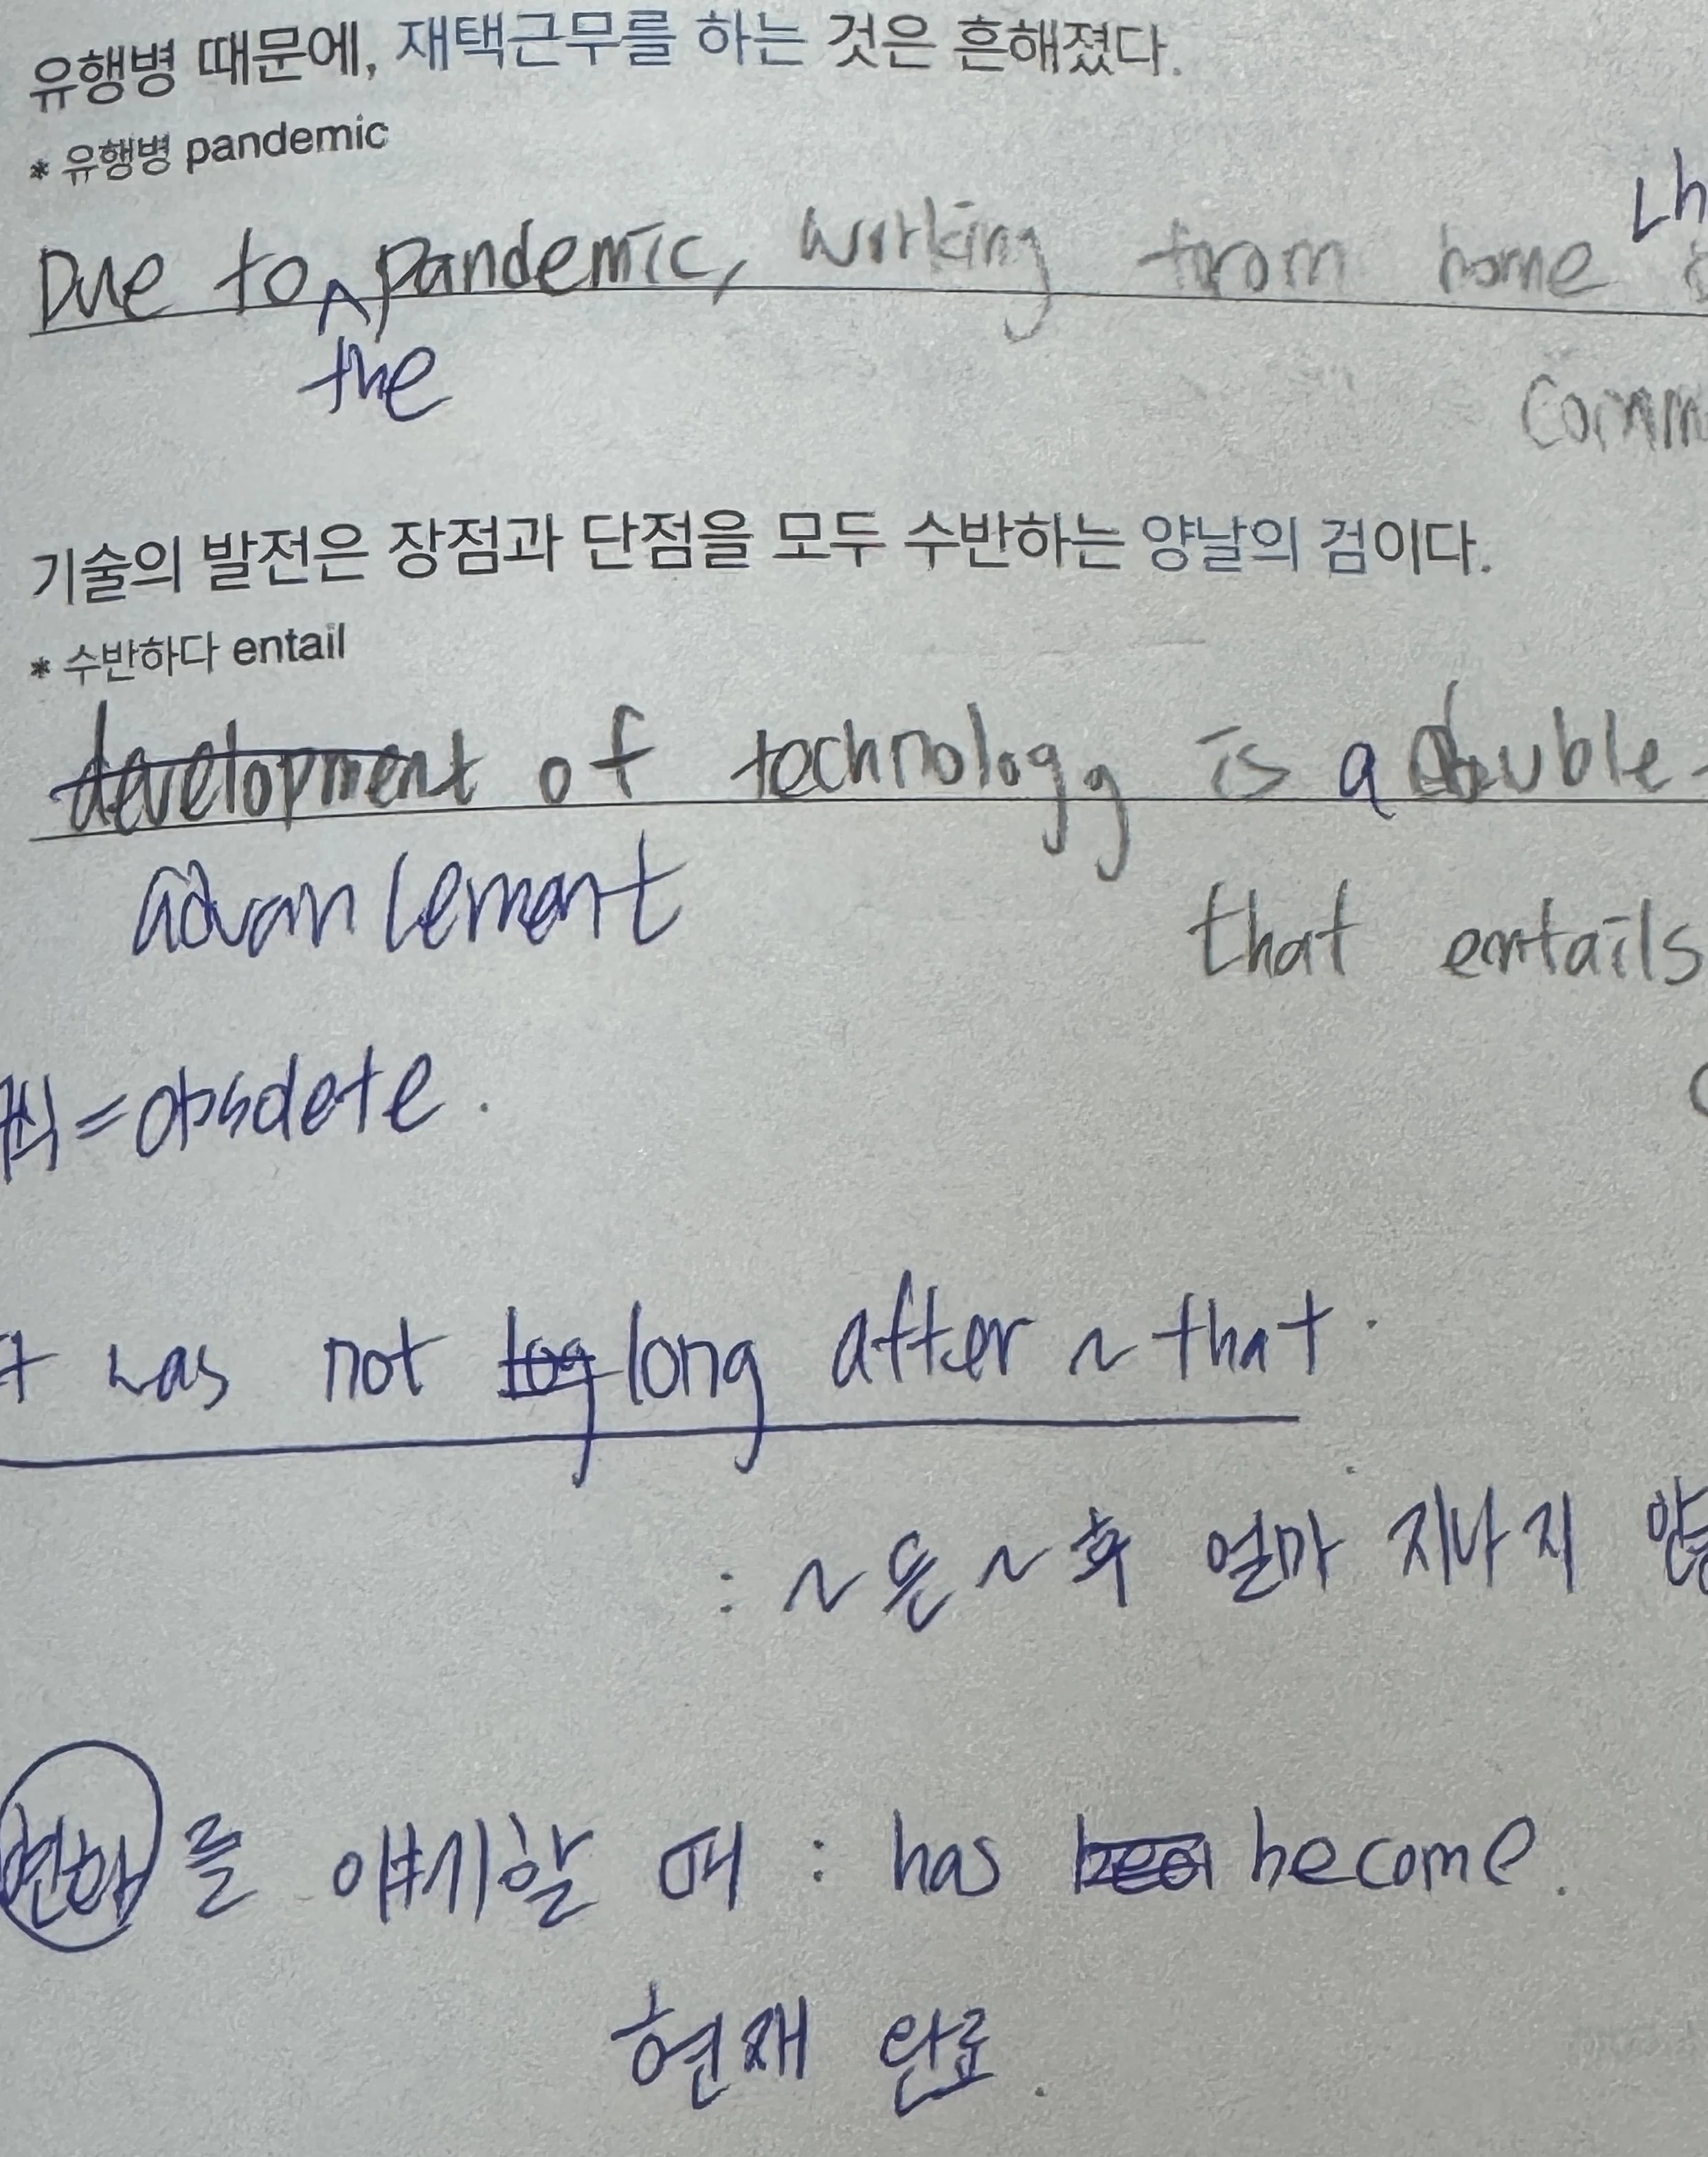 유행병 때문에, 재택근무를 하는 것은 흔해졌다.
* 유행병 pandemic
Due to pandemic, working from home
the
comm
기술의 발전은 장점과 단점을 모두 수반하는 양날의 검이다.
* 수반하다 entail
development of technology is a double-
advancement
that entails
=obsolete.
was not log long after ~ that.
: ~은 ~후 얼마 지나지
변화를 얘기할 때 : has become.
현재 완료.